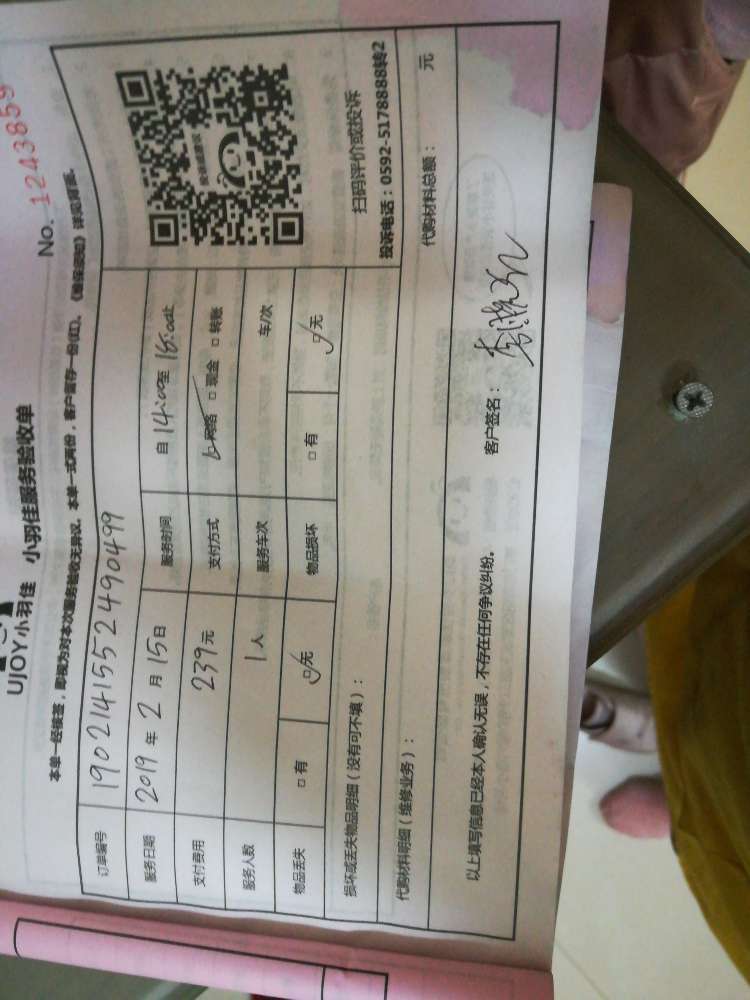 No. 1243859
UJOY小羽佳 小羽佳服务验收单
本单一经核签，即视为对本次服务验收无异议。本单一式两份，客户留存一份(红)。《维保须知》详见背面。
订单编号 190214155249​0499
服务日期 2019 年 2 月 15 日 服务时间 自 14:00至 16:00止
支付费用 239 元 支付方式 网络 □ 现金 □ 转账
服务人数 1 人 服务车次 车/次
物品丢失 □ 有 □ 无 物品损坏 □ 有 □ 无
扫码评价或投诉
投诉电话：0592-5178888转2
损坏或丢失物品明细（没有可不填）：
代购材料明细（维修业务）： 代购材料总额： 元
以上填写信息已经本人确认无误，不存在任何争议纠纷。 客户签名：